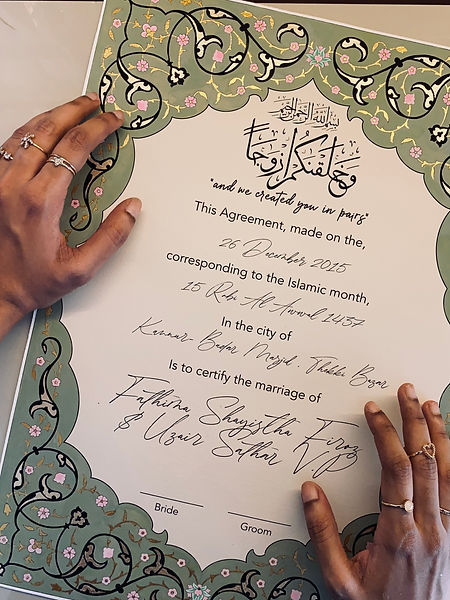 بسم الله الرحمن الرحيم
وخلقنكم أزوجا
"and we created you in pairs"
This Agreement, made on the,
26 December 2015
corresponding to the Islamic month,
15 Rabi Al Awwal 1437
In the city of
Kannur- Badar Masjid , Thekki Bazar
Is to certify the marriage of
Fathima Shayistha Firoz
& Uzair Sathar K P
Bride
Groom